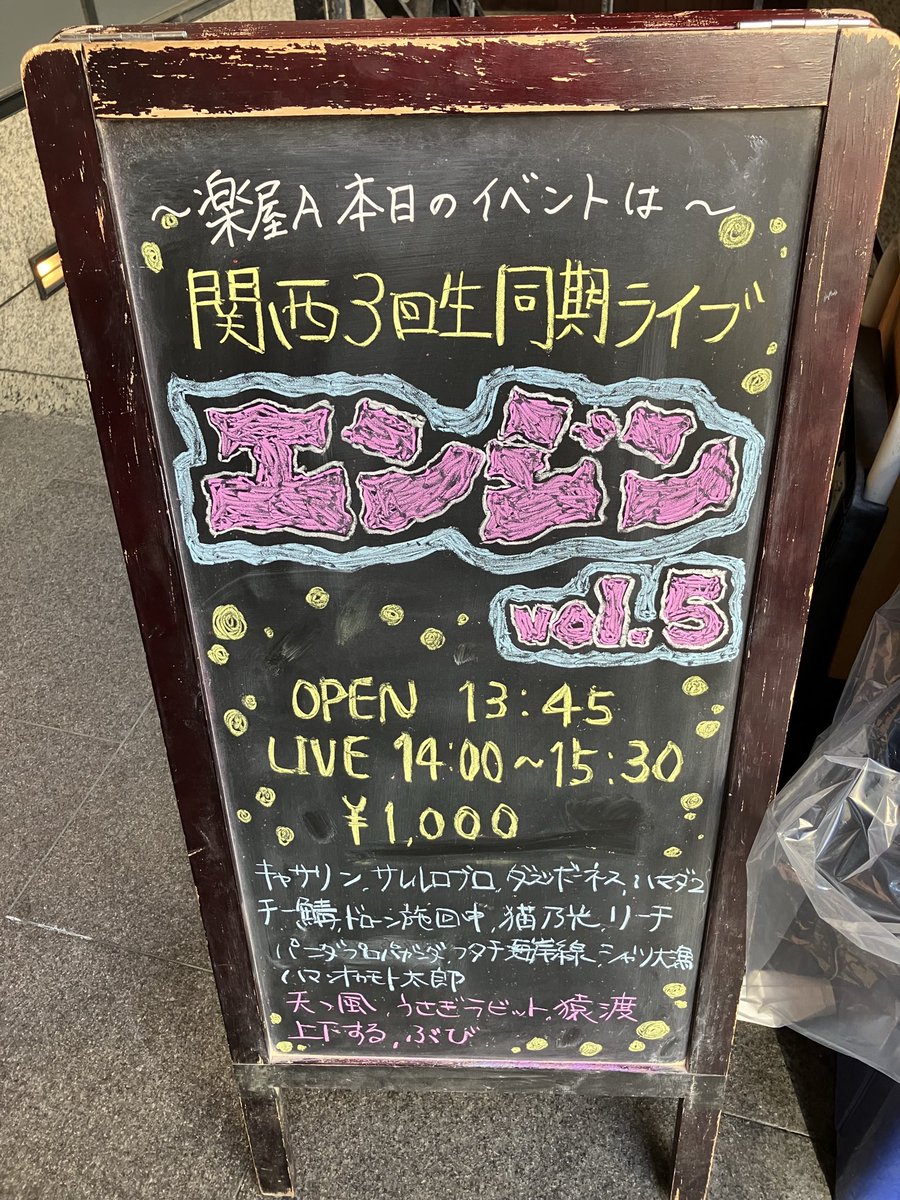 ～楽屋A 本日のイベントは～
関西3回生同期ライブ
エンジン
vol.5
OPEN 13:45
LIVE 14:00～15:30
¥1,000
キャサリン,サルルロブロ,ダブルボーネス,ハマダ2
チー鯖,ドローン旋回中,猫乃光,リーチ
パンダプロパガンダ,フタチ海岸線,シャツ大臣
ハマンオカモト太郎
天っ風,うさぎラビット,猿渡
上下する,ぶび